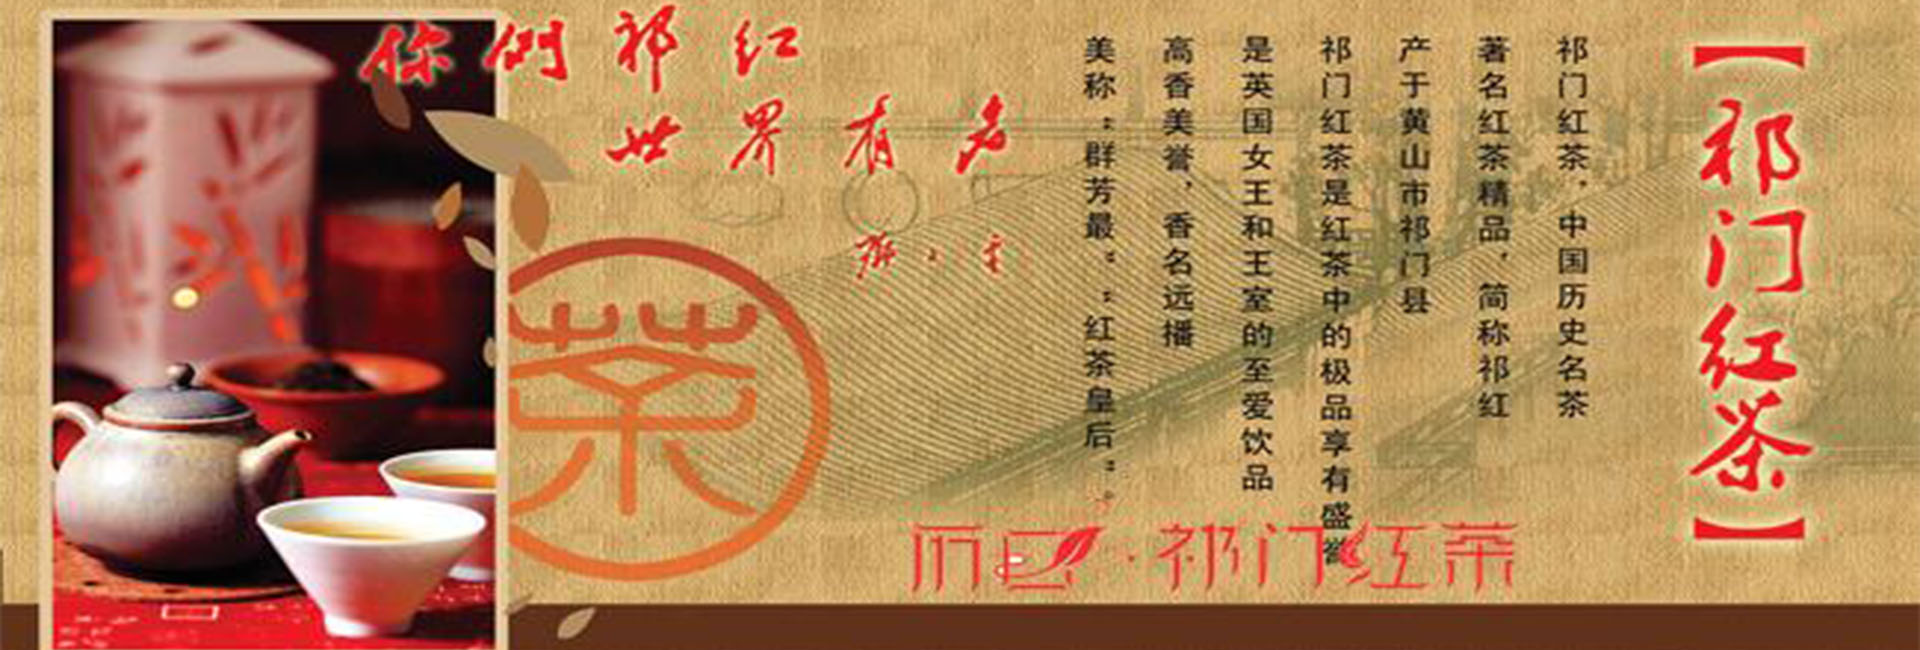 你們祁红
世界有名
【祁门红茶】
祁门红茶，中国历史名茶
著名红茶精品，简称祁红
产于黄山市祁门县
祁门红茶是红茶中的极品享有盛誉
是英国女王和王室的至爱饮品
高香美誉，香名远播
美称"群芳最"、"红茶皇后"。
茶
祁门红茶